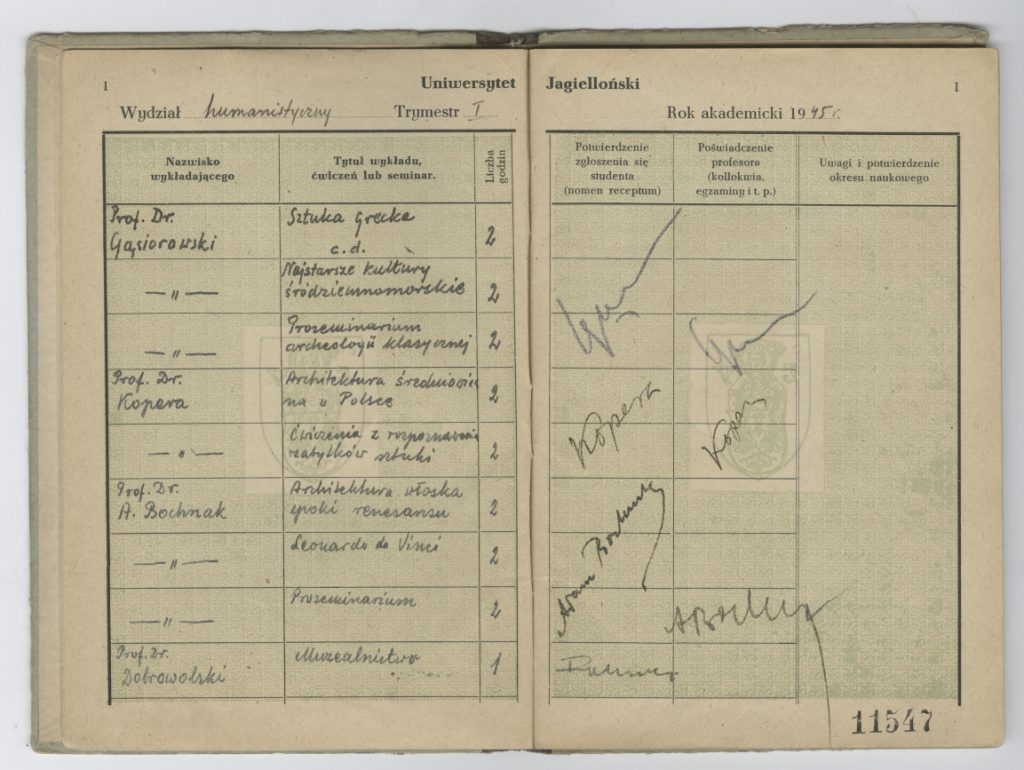 1
Uniwersytet Jagielloński
1
Wydział humanistyczny Trymestr I
Rok akademicki 1945 r.
Nazwisko
wykładającego
Tytuł wykładu,
ćwiczeń lub seminar.
Liczba
godzin
Potwierdzenie
zgłoszenia się
studenta
(nomen receptum)
Poświadczenie
profesora
(kollokwia,
egzaminy i t. p.)
Uwagi i potwierdzenie
okresu naukowego
Prof. Dr.
Gąsiorowski
Sztuka grecka
c.d.
2
— " —
Najstarsze kultury
śródziemnomorskie
2
— " —
Proseminarium
archeologii klasycznej
2
Prof. Dr.
Kopera
Architektura średniowiecz
na w Polsce
2
Kopera
Kopera
— " —
Ćwiczenia z rozpoznawania
zabytków sztuki
2
Prof. Dr.
A. Bochnak
Architektura włoska
epoki renesansu
2
Adam Bochnak
— " —
Leonardo da Vinci
2
— " —
Proseminarium
2
ABochnak
Prof. Dr.
Dobrowolski
Muzealnictwo
1
11547